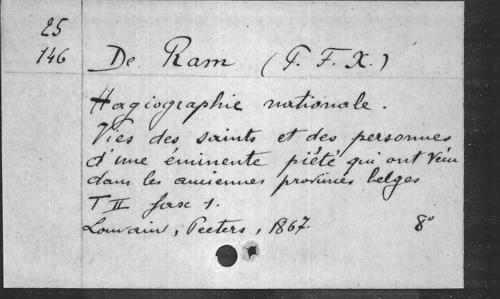 25
146
De Ram (P. F. X.)
Hagiographie nationale.
Vies des saints et des personnes
d'une éminente piété qui ont vécu
dans les anciennes provinces belges
T II fasc 1.
Louvain, Peeters, 1867. 8°